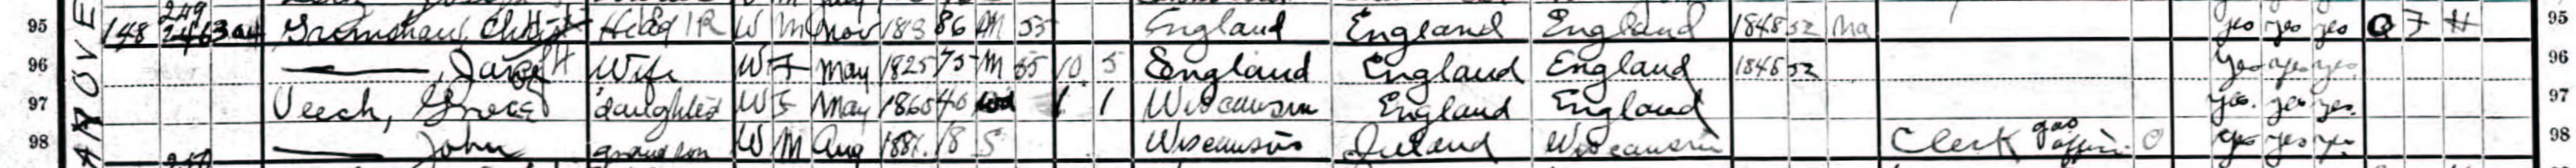 95 148 249 Grimshaw, Head W M Nov 86 M 55 England England England 1848 52 Na yes yes yes O F H 95
96 —, Wife W F May 1825 75 M 55 10 5 England England England 52 Yes yes yes 96
97 Veech, daughter W F May 1860 40 Wd 1 1 Wisconsin England England yes. yes yes. 97
98 — John grandson W M Aug 1881 18 S Wisconsin Ireland Wisconsin Clerk gas office 0 yes yes yes 98